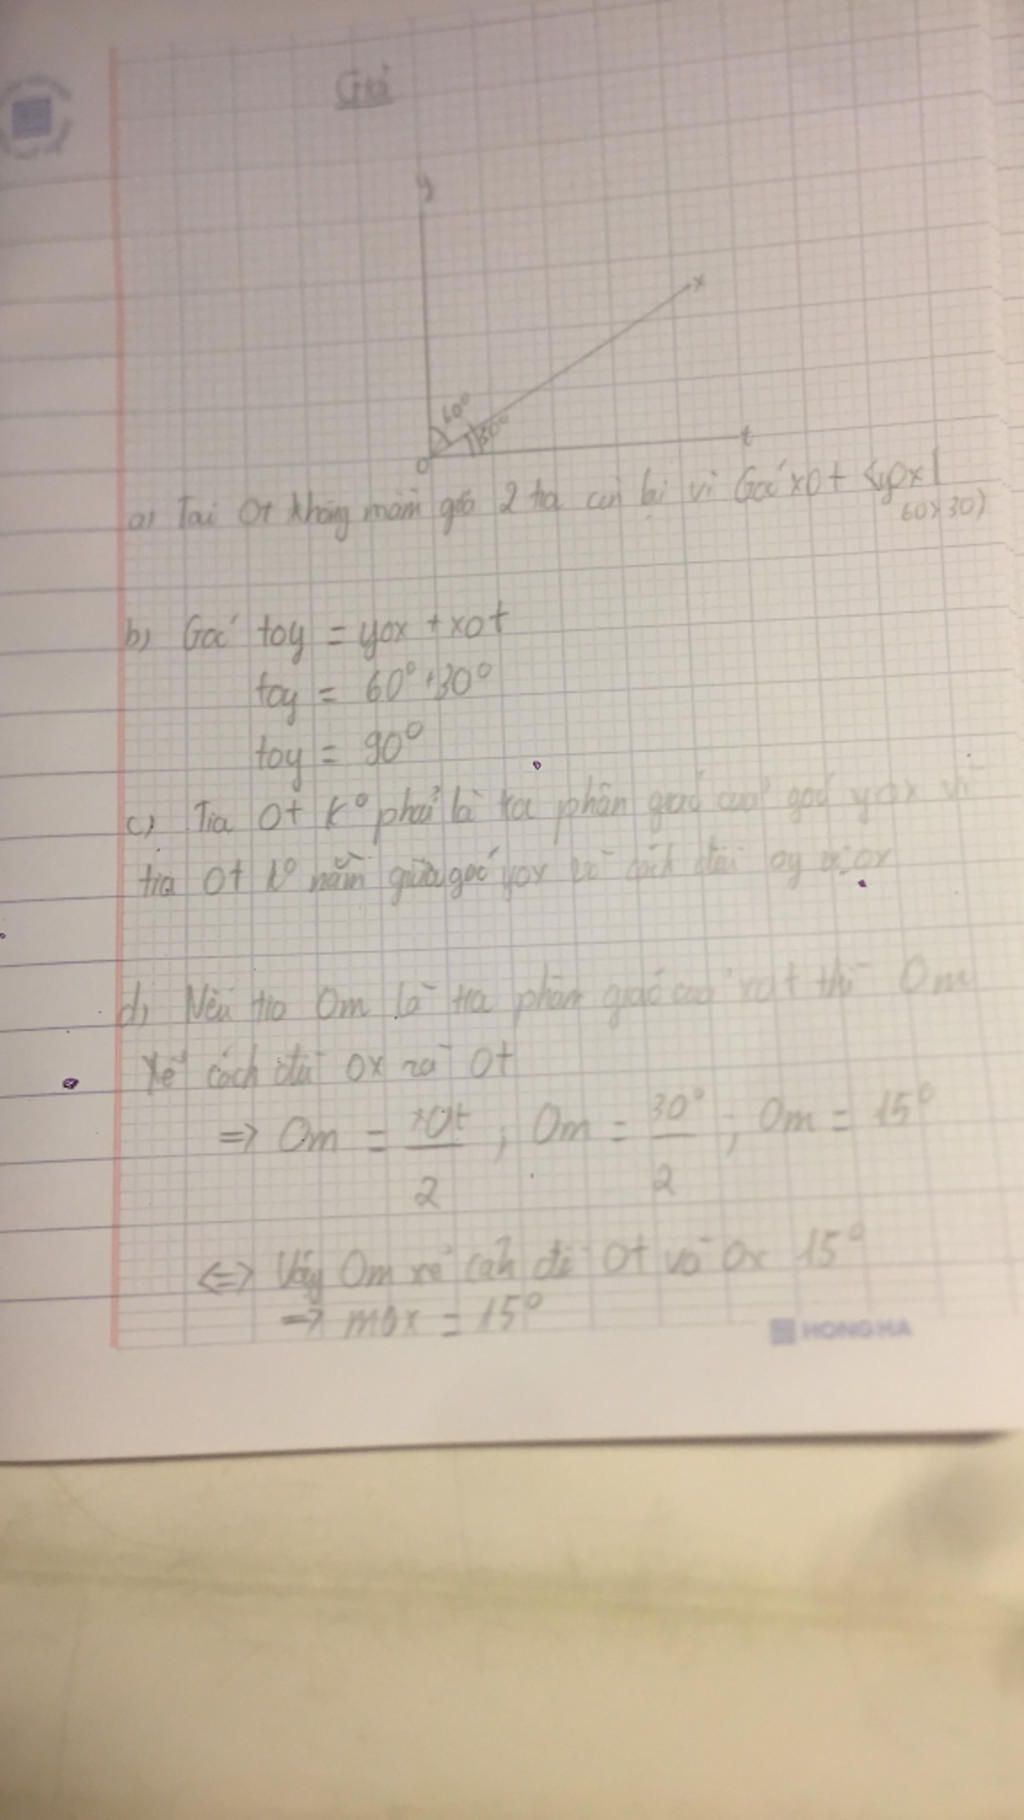 Giải
y
x
60°
30°
t
O
a) Tai Ot không nằm giữa 2 tia còn lại vì Góc xOt < yOx
60>30)
b) Góc toy = yox + xot
toy = 60° + 30°
toy = 90°
c) Tia Ot k° phải là tia phân giác của góc yox vì
tia Ot k° nằm giữa góc yox và cách đều oy và ox
d) Nếu tia Om là tia phân giác của xot thì Om
sẽ cách đều Ox và Ot
=> Om = xOt / 2 ; Om = 30° / 2 ; Om = 15°
<=> Vậy Om sẽ cách đều Ot và Ox 15°
=> mox = 15°
HONG HA